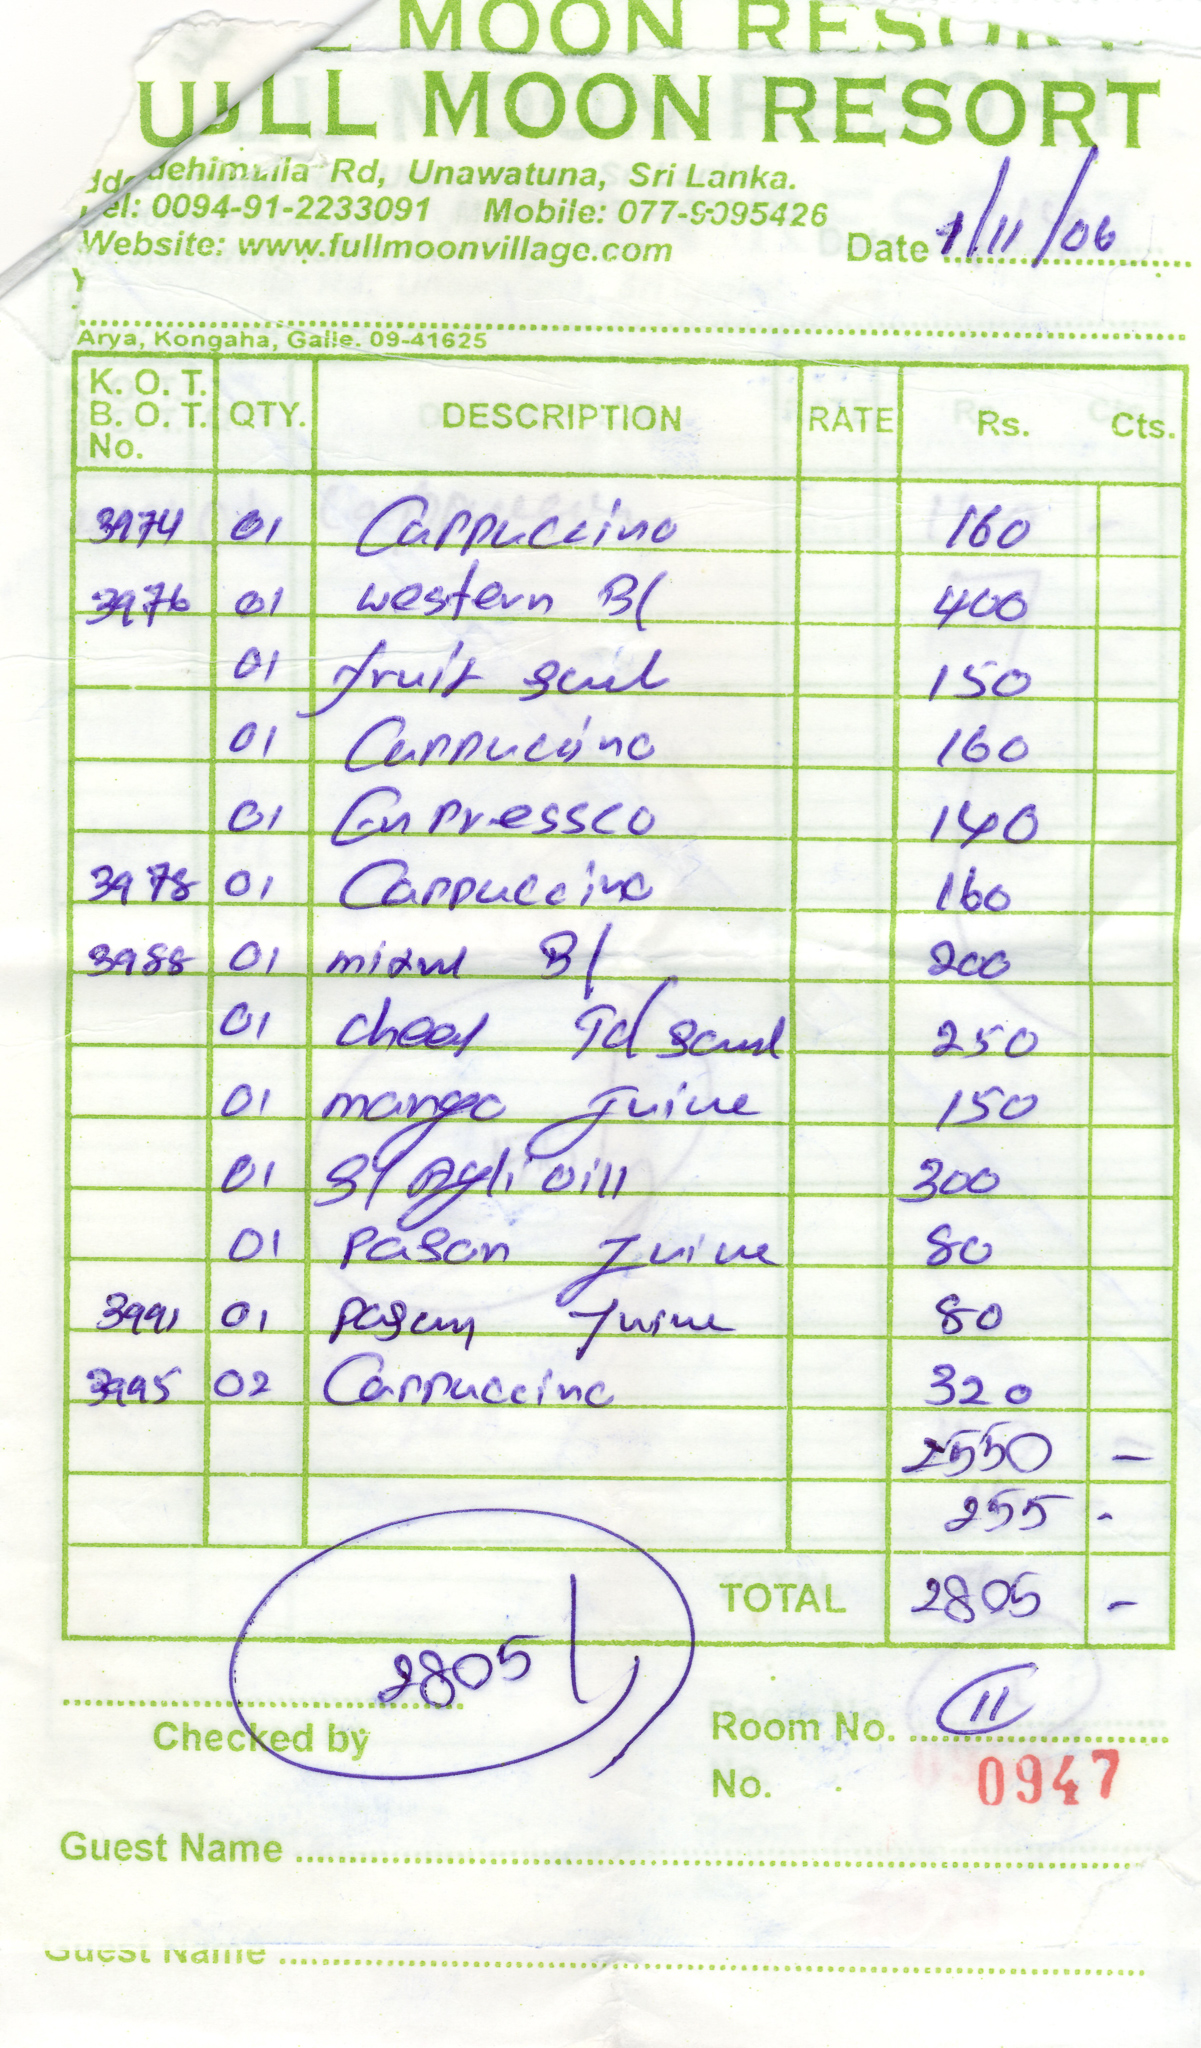 L MOON RESORT
ULL MOON RESORT
dehimulla Rd, Unawatuna, Sri Lanka.
Tel: 0094-91-2233091 Mobile: 077-9095426
Website: www.fullmoonvillage.com
Date 1/11/06
Arya, Kongaha, Galle. 09-41625
K. O. T. B. O. T. No. QTY. DESCRIPTION RATE Rs. Cts.
3974 01 Cappuccino 160
3976 01 western B/ 400
01 fruit 150
01 Cappuccino 160
01 140
3978 01 Cappuccino 160
3988 01 B/ 200
01 250
01 mango Juice 150
01 300
01 Pason Juice 80
3991 01 Juice 80
3995 02 Cappuccino 320
2550 -
255 -
TOTAL 2805 -
2805/
Checked by
Room No. 11
No. 0947
Guest Name
Guest Name